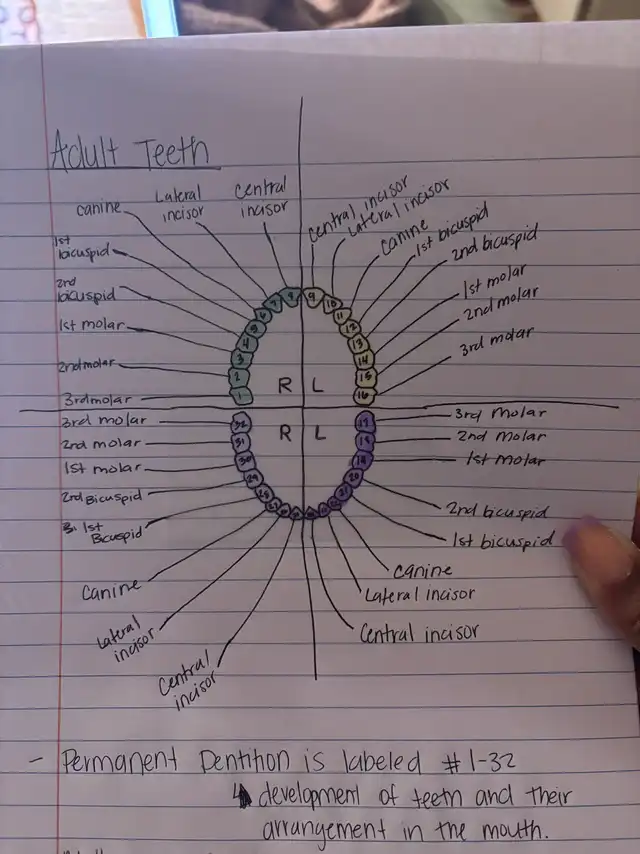 Adult Teeth
canine
Lateral
incisor
Central
incisor
Central incisor
Lateral incisor
canine
1st bicuspid
2nd bicuspid
1st molar
2nd molar
3rd molar
1st
bicuspid
2nd
bicuspid
1st molar
2nd molar
3rd molar
8 9
7 10
6 11
5 12
4 13
3 14
2 15
1 16
R L
R L
32 17
31
30
29 20
3rd molar
2nd molar
1st molar
2nd Bicuspid
1st
Bicuspid
Canine
Lateral
incisor
Central
incisor
3rd Molar
2nd molar
1st Molar
2nd bicuspid
1st bicuspid
canine
Lateral incisor
Central incisor
- Permanent Dentition is labeled #1-32
↳ development of teeth and their
arrangement in the mouth.